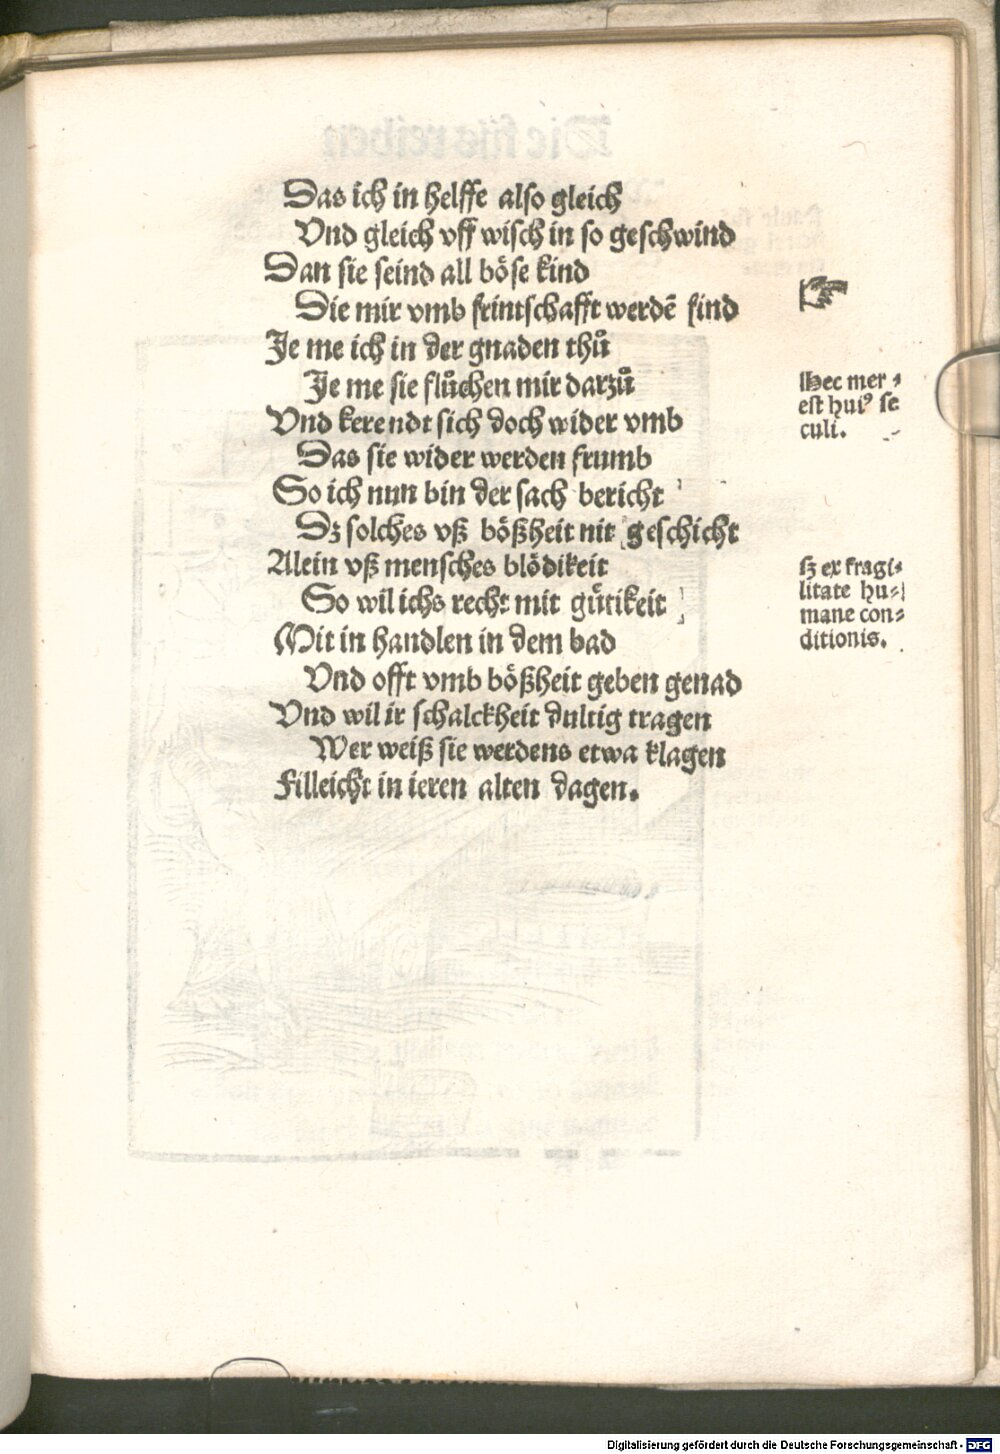 Das ich in helffe also gleich
Vnd gleich vff wisch in so geschwind
Dan sie seind all böse kind
Die mir vmb frintschafft werdē find
Je me ich in der gnaden thuͦ
Je me sie fluͦchen mir darzuͦ
Vnd kerendt sich doch wider vmb
Das sie wider werden frumb
So ich nun bin der sach bericht
Dz solches vß bößheit nit geschicht
Alein vß mensches blödikeit
So wil ichs recht mit gütikeit
Mit in handlen in dem bad
Vnd offt vmb bößheit geben genad
Vnd wil ir schalckheit dultig tragen
Wer weiß sie werdens etwa klagen
Filleicht in ieren alten dagen.
☞
Hec mer⸗
est huiꝰ se
culi.
sz ex fragi⸗
litate hu⸗
mane con⸗
ditionis.
Digitalisierung gefördert durch die Deutsche Forschungsgemeinschaft - DFG